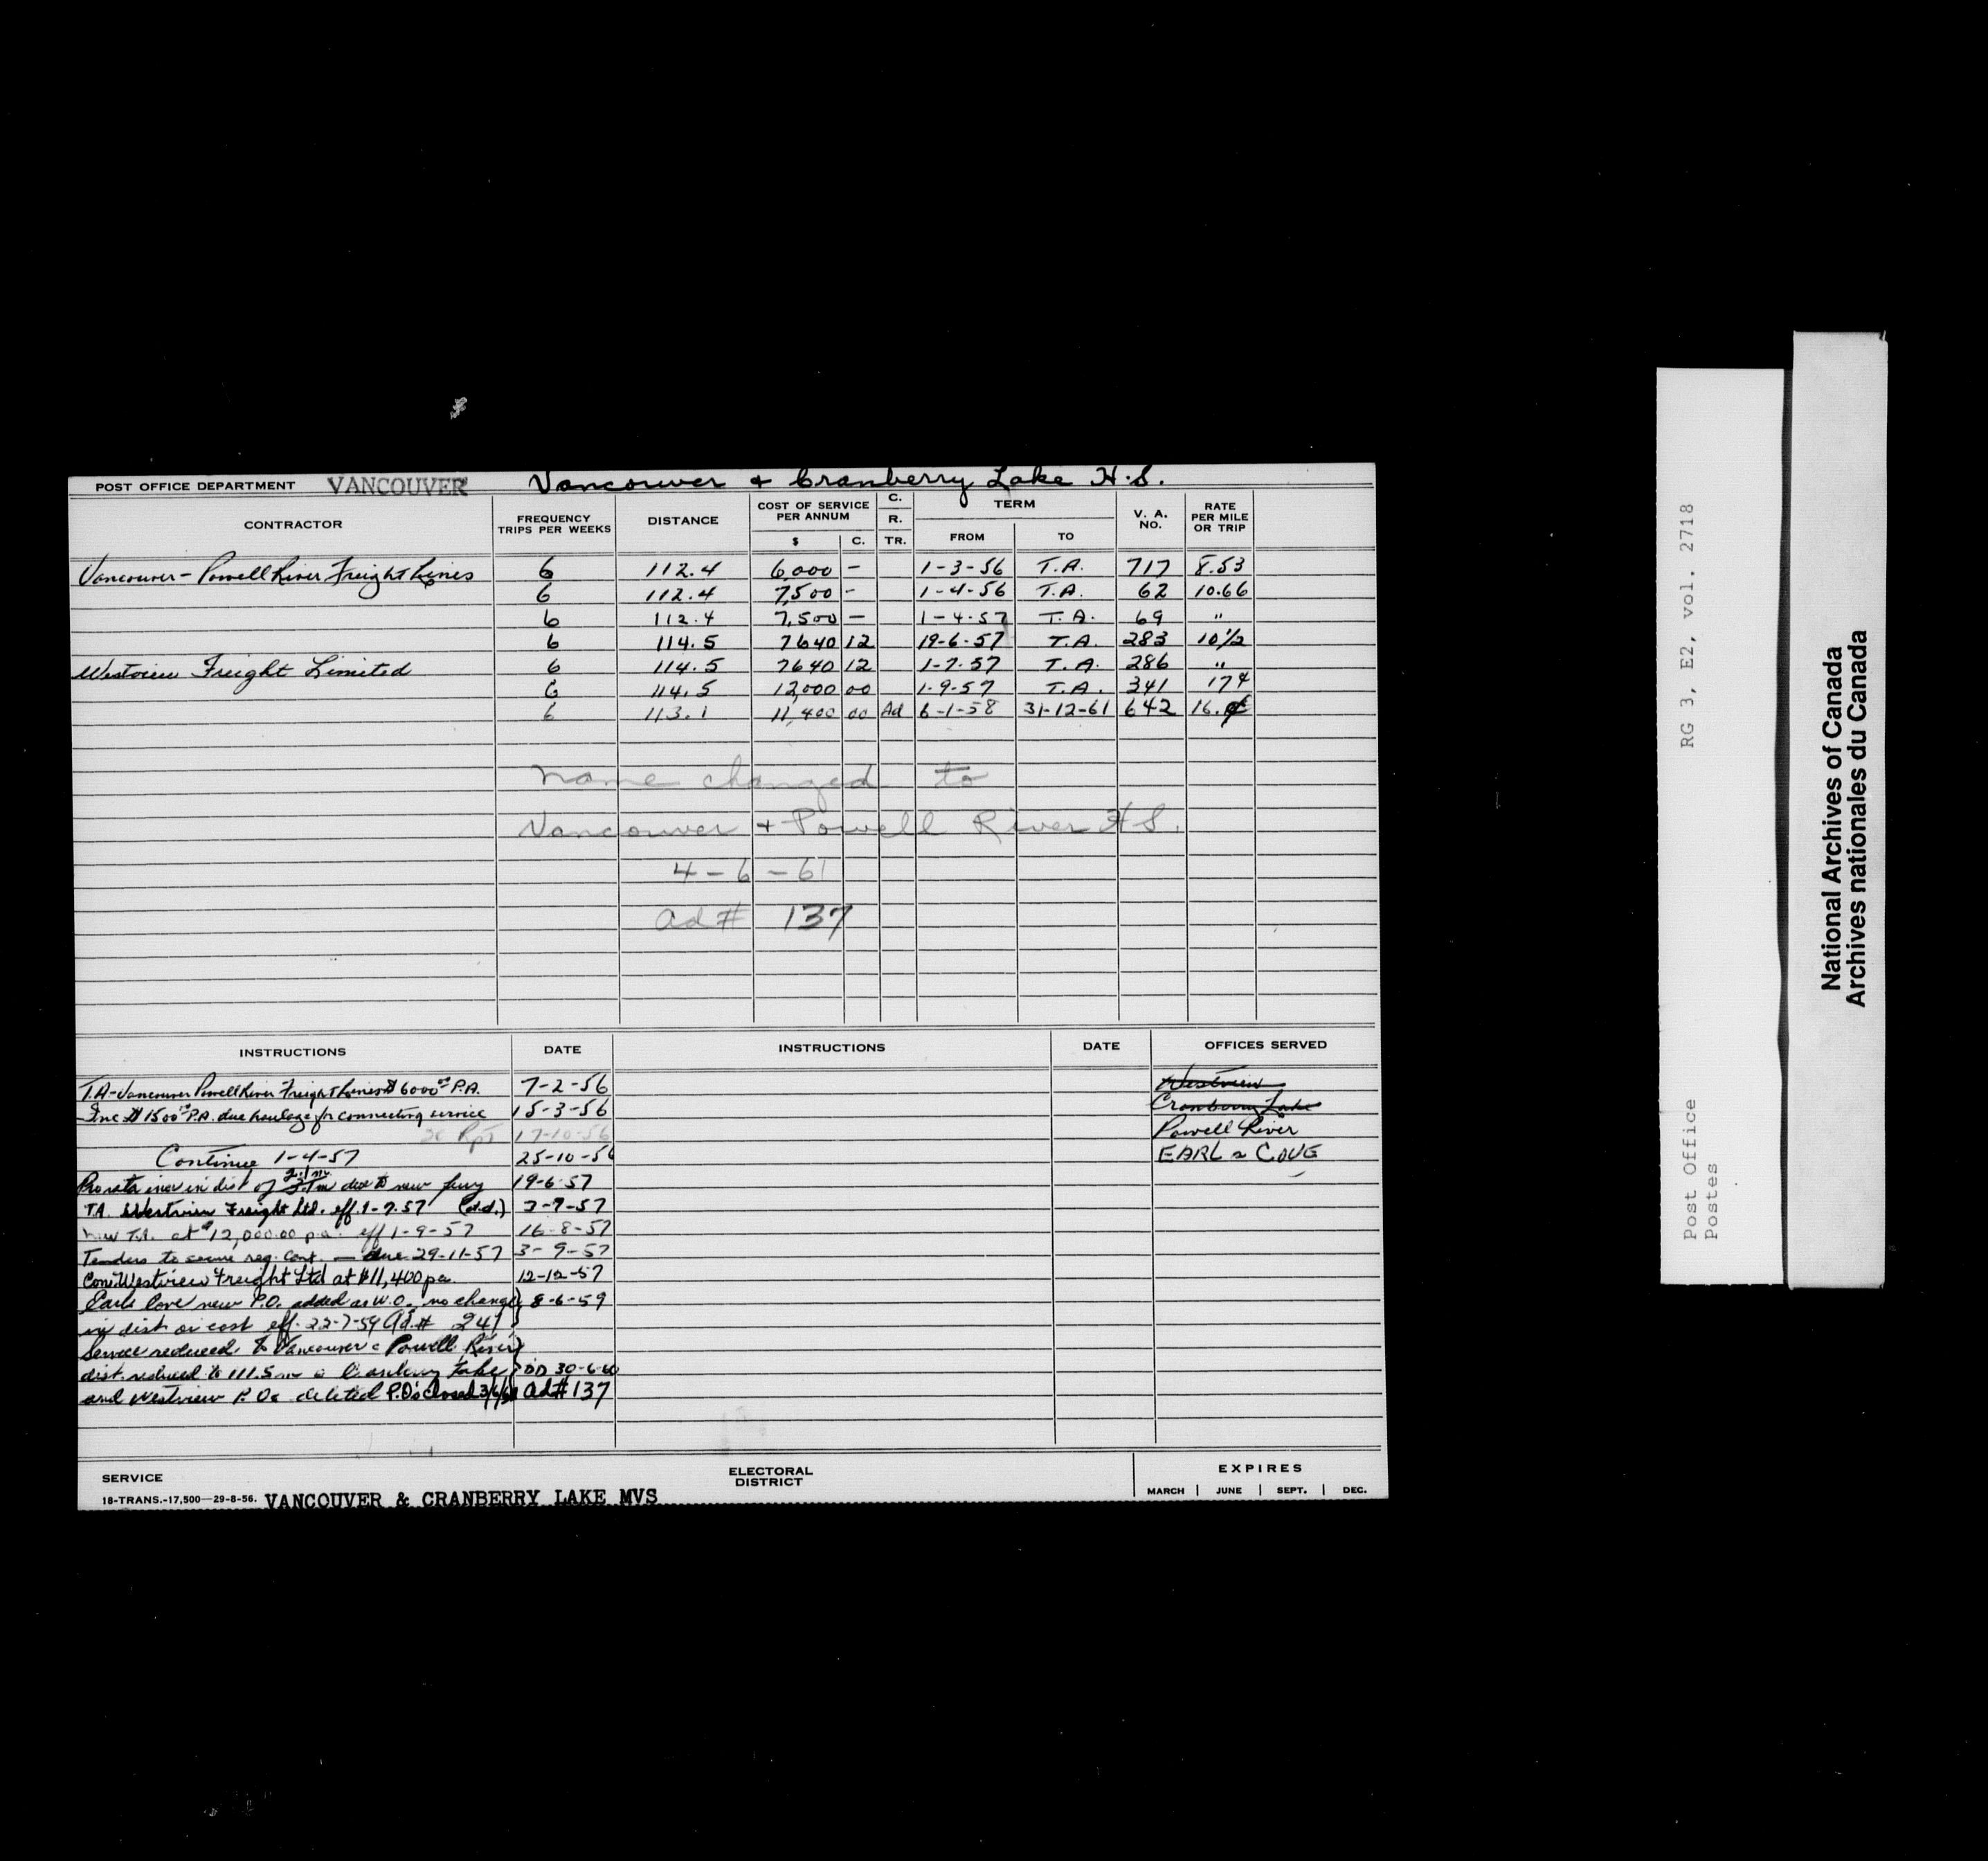 POST OFFICE DEPARTMENT VANCOUVER Vancouver + Cranberry Lake H.S.
CONTRACTOR FREQUENCY TRIPS PER WEEKS DISTANCE COST OF SERVICE PER ANNUM $ C. C. R. TR. TERM FROM TO V. A. NO. RATE PER MILE OR TRIP
Vancouver-Powell River Freight Lines 6 112.4 6,000 — 1-3-56 T.A. 717 8.53
6 112.4 7,500 — 1-4-56 T.A. 62 10.66
6 112.4 7,500 — 1-4-57 T.A. 69 "
6 114.5 7640 12 19-6-57 T.A. 283 10½
Westview Freight Limited 6 114.5 7640 12 1-7-57 T.A. 286 "
6 114.5 12,000 00 1-9-57 T.A. 341 17¢
6 113.1 11,400 00 Ad 6-1-58 31-12-61 642 16.¢
name changed to
Vancouver + Powell River H S.
4-6-61
ad # 137
INSTRUCTIONS DATE INSTRUCTIONS DATE OFFICES SERVED
T.A-Vancouver Powell River Freight Lines $6000 P.A. 7-2-56 Westview
Inc $1500 P.A. due haulage for connecting service 15-3-56 Cranberry Lake
Rpt 17-10-56 Powell River
Continue 1-4-57 25-10-56 EARL'S COVE
2.1 m.
Prorata incr in dist of due to new ferry 19-6-57
T.A. Westview Freight Ltd. eff 1-7-57 (d.d.) 2-7-57
New T.A. at $12,000.00 p.a. eff 1-9-57 16-8-57
Tenders to secure reg. cont. — due 29-11-57 3-9-57
Con: Westview Freight Ltd at $11,400 pa 12-12-57
Earls Cove new P.O. added as W.O. no change 8-6-59
in dist or cost eff. 22-7-59 Ad.# 241
Service reduced to Vancouver & Powell River
dist. reduced to 111.5 m Cranberry Lake DD 30-6-60
and Westview P.Os deleted P.O's closed Ad# 137
SERVICE ELECTORAL DISTRICT EXPIRES
18-TRANS.-17,500—29-8-56. VANCOUVER & CRANBERRY LAKE MVS MARCH | JUNE | SEPT. | DEC.
Post Office RG 3, E2, vol. 2718
Postes
National Archives of Canada
Archives nationales du Canada